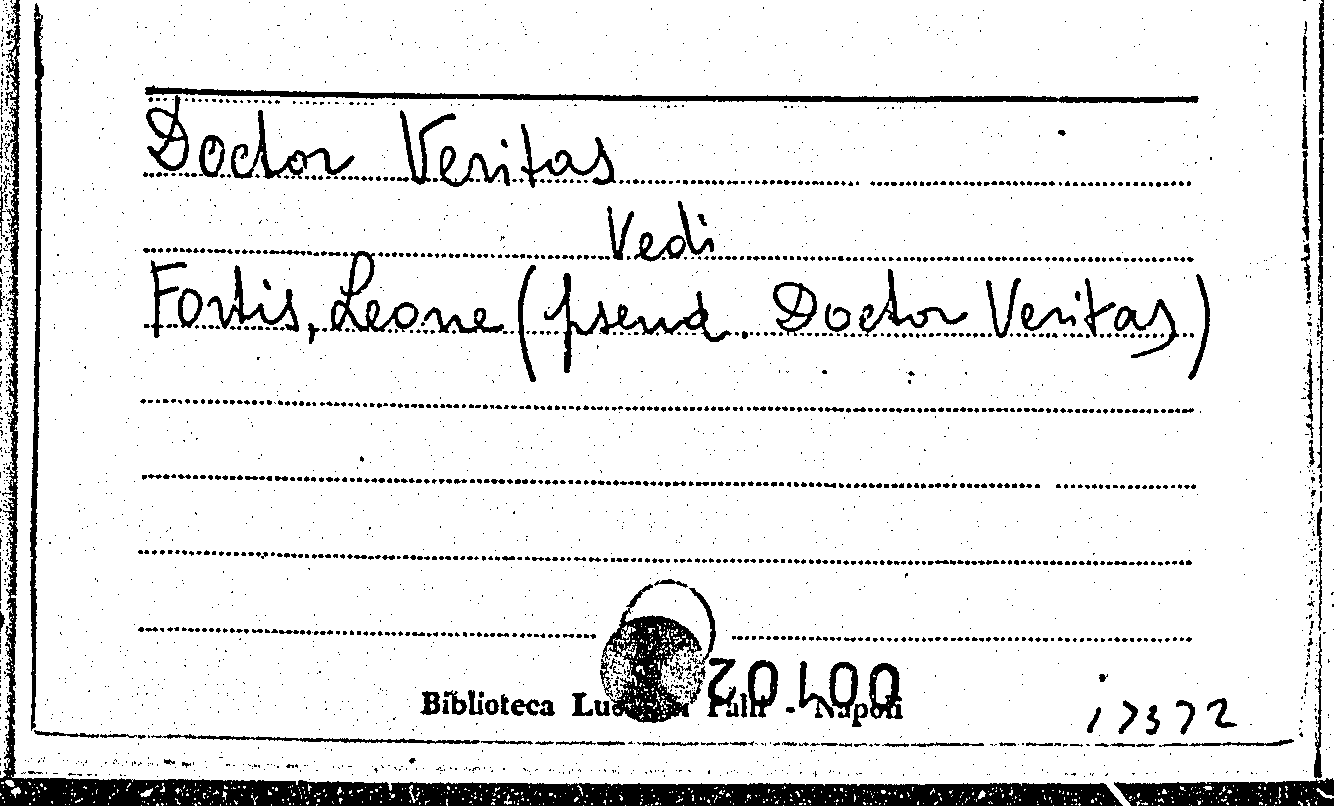 Doctor Veritas
Vedi
Fortis, Leone (pseud. Doctor Veritas)
Biblioteca - Napoli
17372